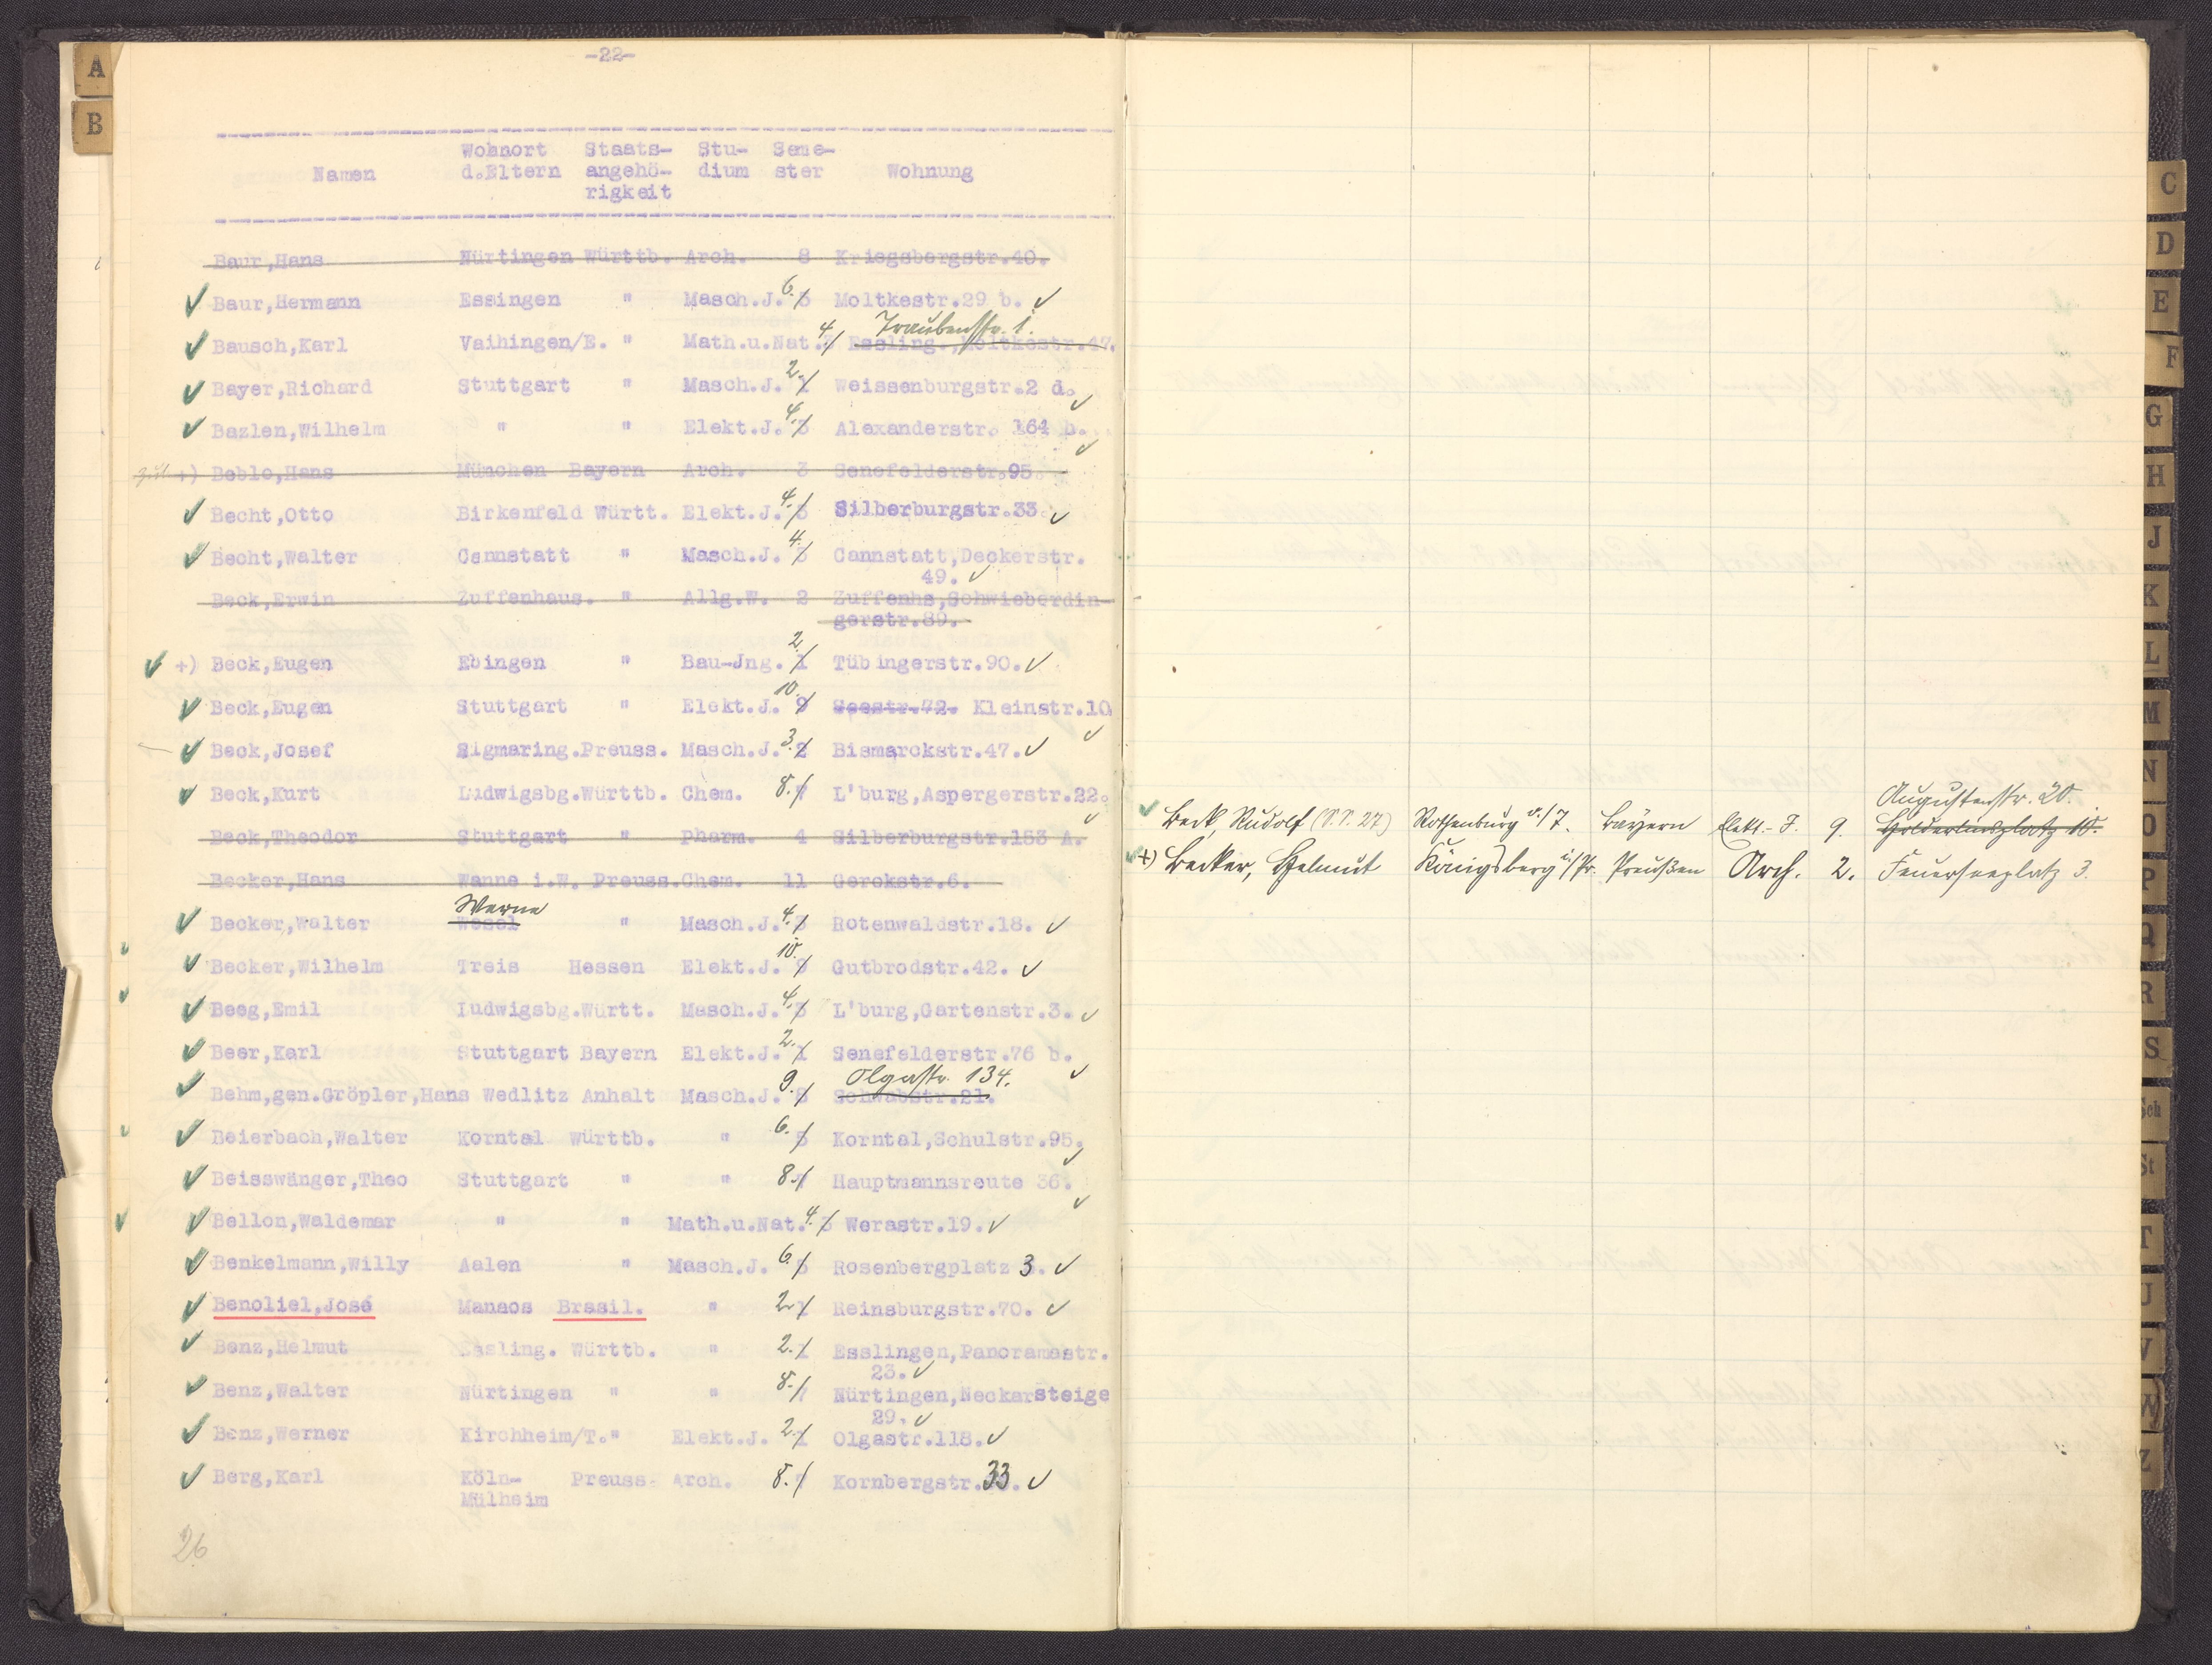 -22-
A
B
Namen Wohnort d.Eltern Staats-angehö-rigkeit Stu-dium Seme-ster Wohnung
Baur,Hans Nürtingen Württb. Arch. 8 Kriegsbergstr.40.
Baur,Hermann Essingen " Masch.J. 6. 5 Moltkestr.29 b.
Traubenstr. 1.
Bausch,Karl Vaihingen/E. " Math.u.Nat. 4. 3 Essling.,Moltkestr.47.
Bayer,Richard Stuttgart " Masch.J. 2. 1 Weissenburgstr.2 d.
Bazlen,Wilhelm " " Elekt.J. 4. 3 Alexanderstr. 164 b.
+) Beblo,Hans München Bayern Arch. 3 Senefelderstr.95
Becht,Otto Birkenfeld Württ. Elekt.J. 4. 3 Silberburgstr.33.
Becht,Walter Cannstatt " Masch.J. 4. 3 Cannstatt,Deckerstr.
49.
Beck,Erwin Zuffenhaus. " Allg.W. 2 Zuffenhs,Schwieberdin-
gerstr.89.
+) Beck,Eugen Ebingen " Bau-Jng. 2. 1 Tübingerstr.90.
Beck,Eugen Stuttgart " Elekt.J. 10. 9 Seestr.72. Kleinstr.10
Beck,Josef Sigmaring.Preuss. Masch.J. 3. 2 Bismarckstr.47.
Beck,Kurt Ludwigsbg.Württb. Chem. 8. 7 L'burg,Aspergerstr.22.
Beck,Theodor Stuttgart " Pharm. 4 Silberburgstr.153 A.
Becker,Hans Wanne i.W. Preuss.Chem. 11 Gerokstr.6.
Werne
Becker,Walter Wesel " Masch.J. 4. 3 Rotenwaldstr.18.
Becker,Wilhelm Treis Hessen Elekt.J. 10. 9 Gutbrodstr.42.
Beeg,Emil Ludwigsbg.Württ. Masch.J. 4. 3 L'burg,Gartenstr.3.
Beer,Karl Stuttgart Bayern Elekt.J. 2. 1 Senefelderstr.76 b.
Olgastr. 134.
Behm,gen.Gröpler,Hans Wedlitz Anhalt Masch.J. 9. 8 Schwabstr.21.
Beierbach,Walter Korntal Württb. " 6. 5 Korntal,Schulstr.95.
Beisswänger,Theo Stuttgart " " 8. 7 Hauptmannsreute 36.
Bellon,Waldemar " " Math.u.Nat. 4. 3 Werastr.19.
Benkelmann,Willy Aalen " Masch.J. 6. 5 Rosenbergplatz 3.
Benoliel,José Manaos Brasil. " 2. 1 Reinsburgstr.70.
Benz,Helmut Essling. Württb. " 2. 1 Esslingen,Panoramastr.
23.
Benz,Walter Nürtingen " " 8. 7 Nürtingen,Neckarsteige
29.
Benz,Werner Kirchheim/T." Elekt.J. 2. 1 Olgastr.118.
Berg,Karl Köln- Preuss. Arch. 8. 7 Kornbergstr.33.
Mülheim
26
Augustenstr. 20.
Beck, Rudolf (S.S. 27) Rothenburg o./T. Bayern Elekt.-J. 9. Hölderlinsplatz 10.
+) Becker, Helmut Königsberg i/Pr. Preußen Arch. 2. Feuerseeplatz 3.
C
D
E
F
G
H
J
K
L
M
N
O
P
Q
R
S
Sch
St
T
U
V
W
Z